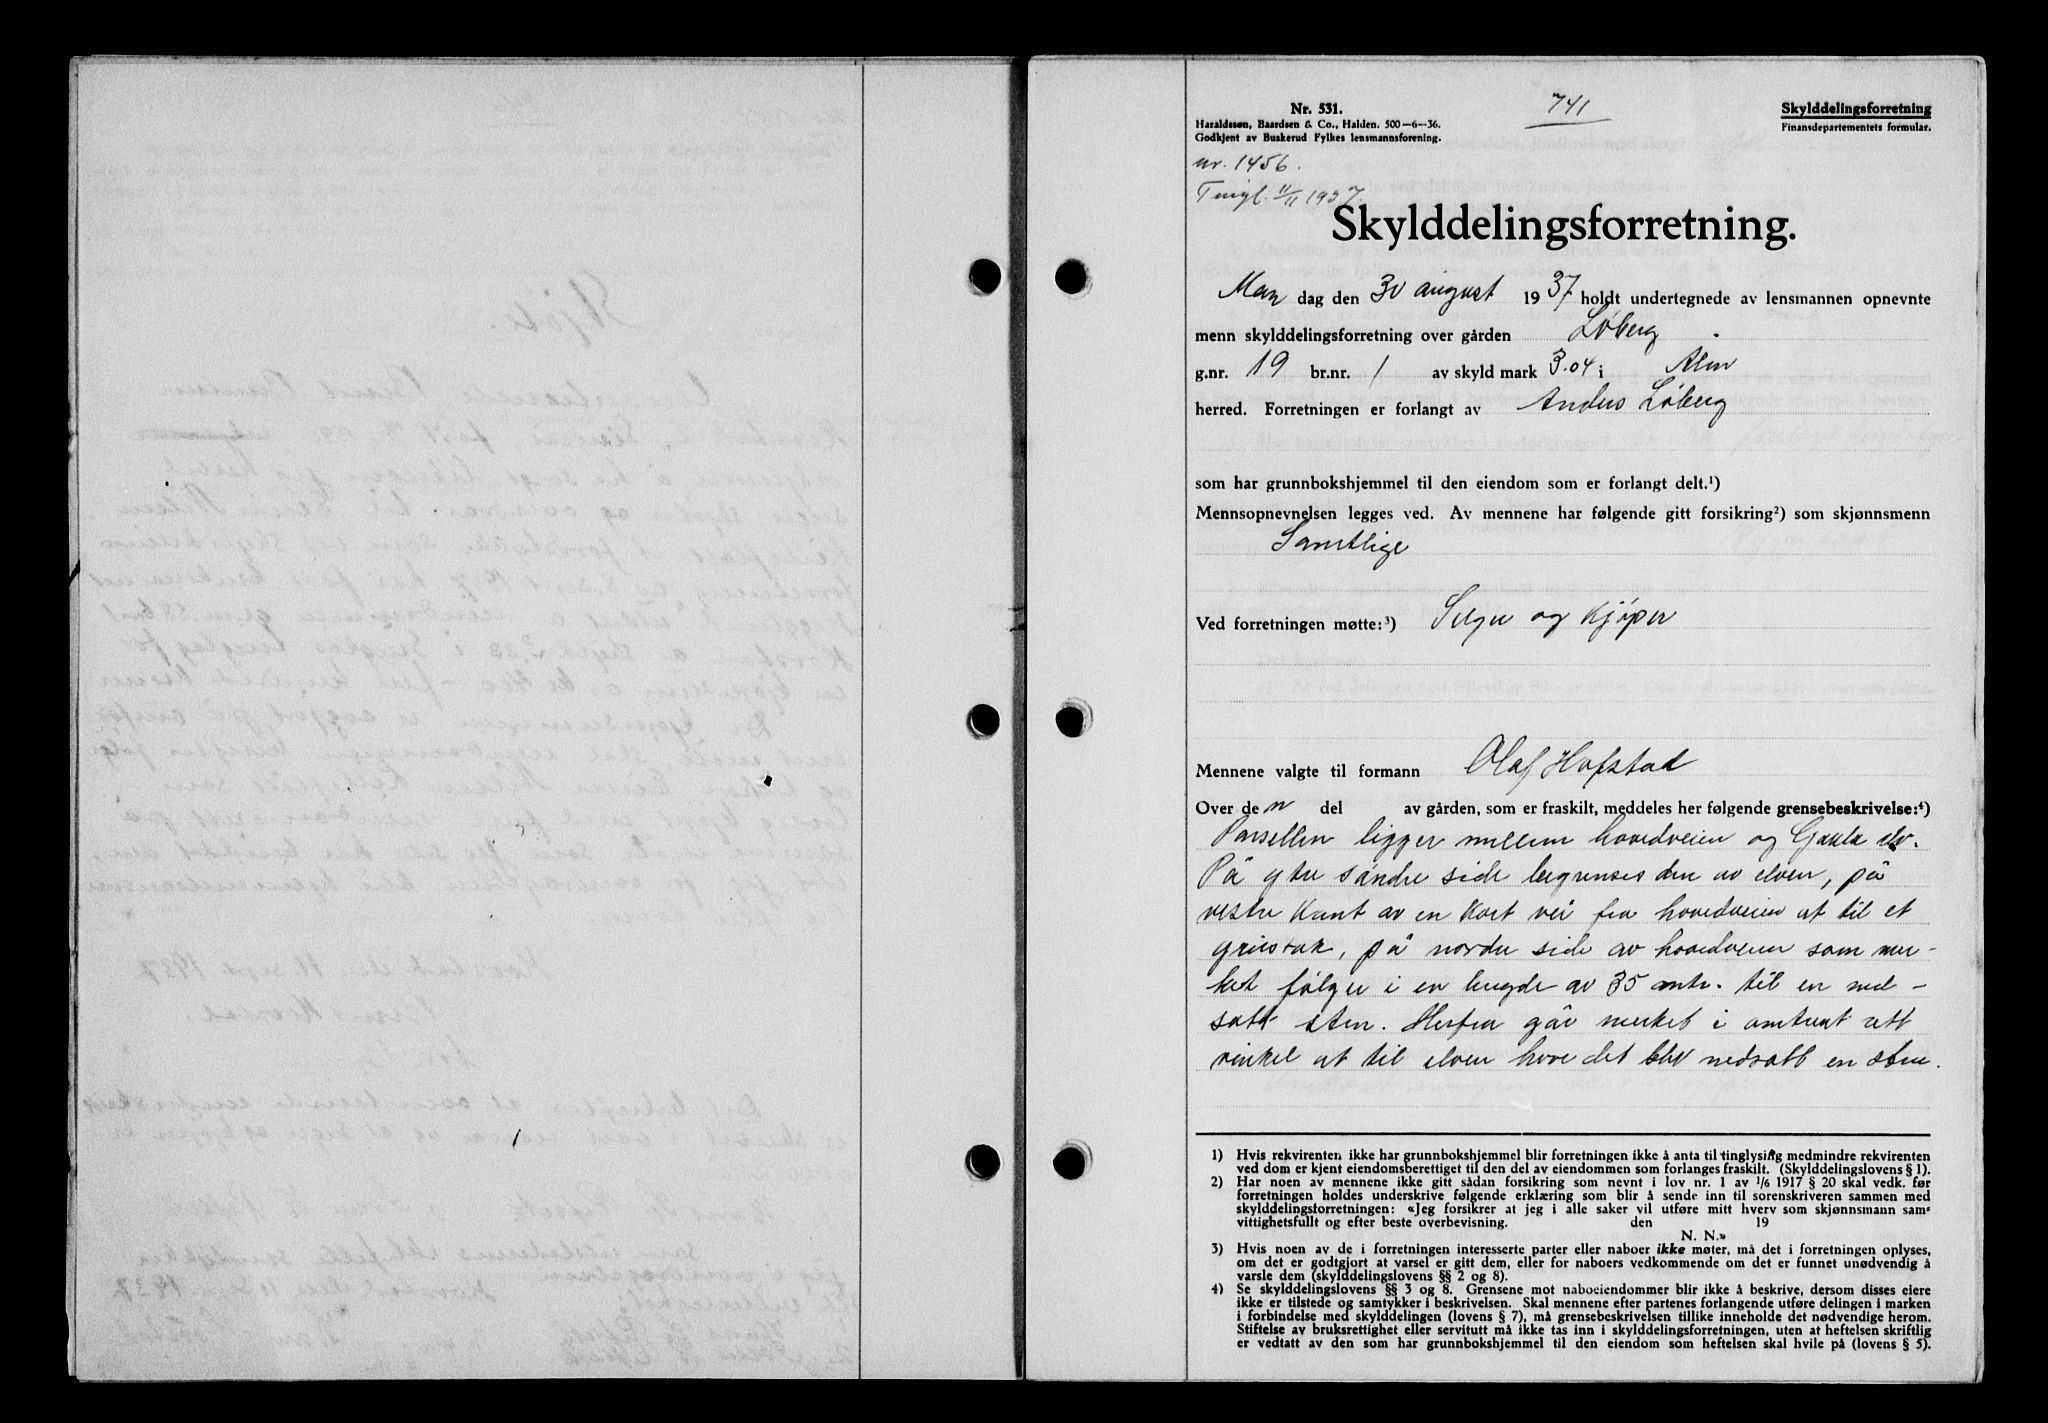 741
Nr. 531.
Haraldssøn, Baardsen & Co., Halden. 500—6—36.
Godkjent av Buskerud Fylkes lensmannsforening.
Skylddelingsforretning
Finansdepartementets formular.
nr. 1456.
Tingl. 11/11 1937.
Skylddelingsforretning.
Man dag den 30 august 1937 holdt undertegnede av lensmannen opnevnte
menn skylddelingsforretning over gården Løberg
g.nr. 19 br.nr. 1 av skyld mark 3.04 i Ålen
herred. Forretningen er forlangt av Anders Løberg
som har grunnbokshjemmel til den eiendom som er forlangt delt.¹)
Mennsopnevnelsen legges ved. Av mennene har følgende gitt forsikring²) som skjønnsmenn
Samtlige
Ved forretningen møtte:³) Selger og Kjøper
Mennene valgte til formann Olaf Hofstad
Over den del av gården, som er fraskilt, meddeles her følgende grensebeskrivelse:⁴)
Parsellen ligger mellem hovedveien og Gaula elv.
På ytre søndre side begrenses den av elven, på
vestre kant av en kort vei fra hovedveien ut til et
grustak, på nordre side av hovedveien som mer-
ket følger i en lengde av 35 mtr. til en ned-
satt sten. Herfra går merket i omtrent rett
vinkel ut til elven hvor det blev nedsatt en sten.
1) Hvis rekvirenten ikke har grunnbokshjemmel blir forretningen ikke å anta til tinglysing medmindre rekvirenten
ved dom er kjent eiendomsberettiget til den del av eiendommen som forlanges fraskilt. (Skylddelingslovens § 1).
2) Har noen av mennene ikke gitt sådan forsikring som nevnt i lov nr. 1 av 1/6 1917 § 20 skal vedk. før
forretningen holdes underskrive følgende erklæring som blir å sende inn til sorenskriveren sammen med
skylddelingsforretningen: «Jeg forsikrer at jeg i alle saker vil utføre mitt hverv som skjønnsmann sam-
vittighetsfullt og efter beste overbevisning. den 19
N. N.»
3) Hvis noen av de i forretningen interesserte parter eller naboer ikke møter, må det i forretningen oplyses,
om det er godtgjort at varsel er gitt dem, eller for naboers vedkommende om det er funnet unødvendig å
varsle dem (skylddelingslovens §§ 2 og 8).
4) Se skylddelingslovens §§ 3 og 8. Grensene mot naboeiendommer blir ikke å beskrive, dersom disses eiere
ikke er tilstede og samtykker i beskrivelsen. Skal mennene efter partenes forlangende utføre delingen i marken
i forbindelse med skylddelingen (lovens § 7), må grensebeskrivelsen tillike inneholde det nødvendige herom.
Stiftelse av bruksrettighet eller servitutt må ikke tas inn i skylddelingsforretningen, uten at heftelsen skriftlig
er vedtatt av den som har grunnbokshjemmel til den eiendom som heftelsen skal hvile på (lovens § 5).